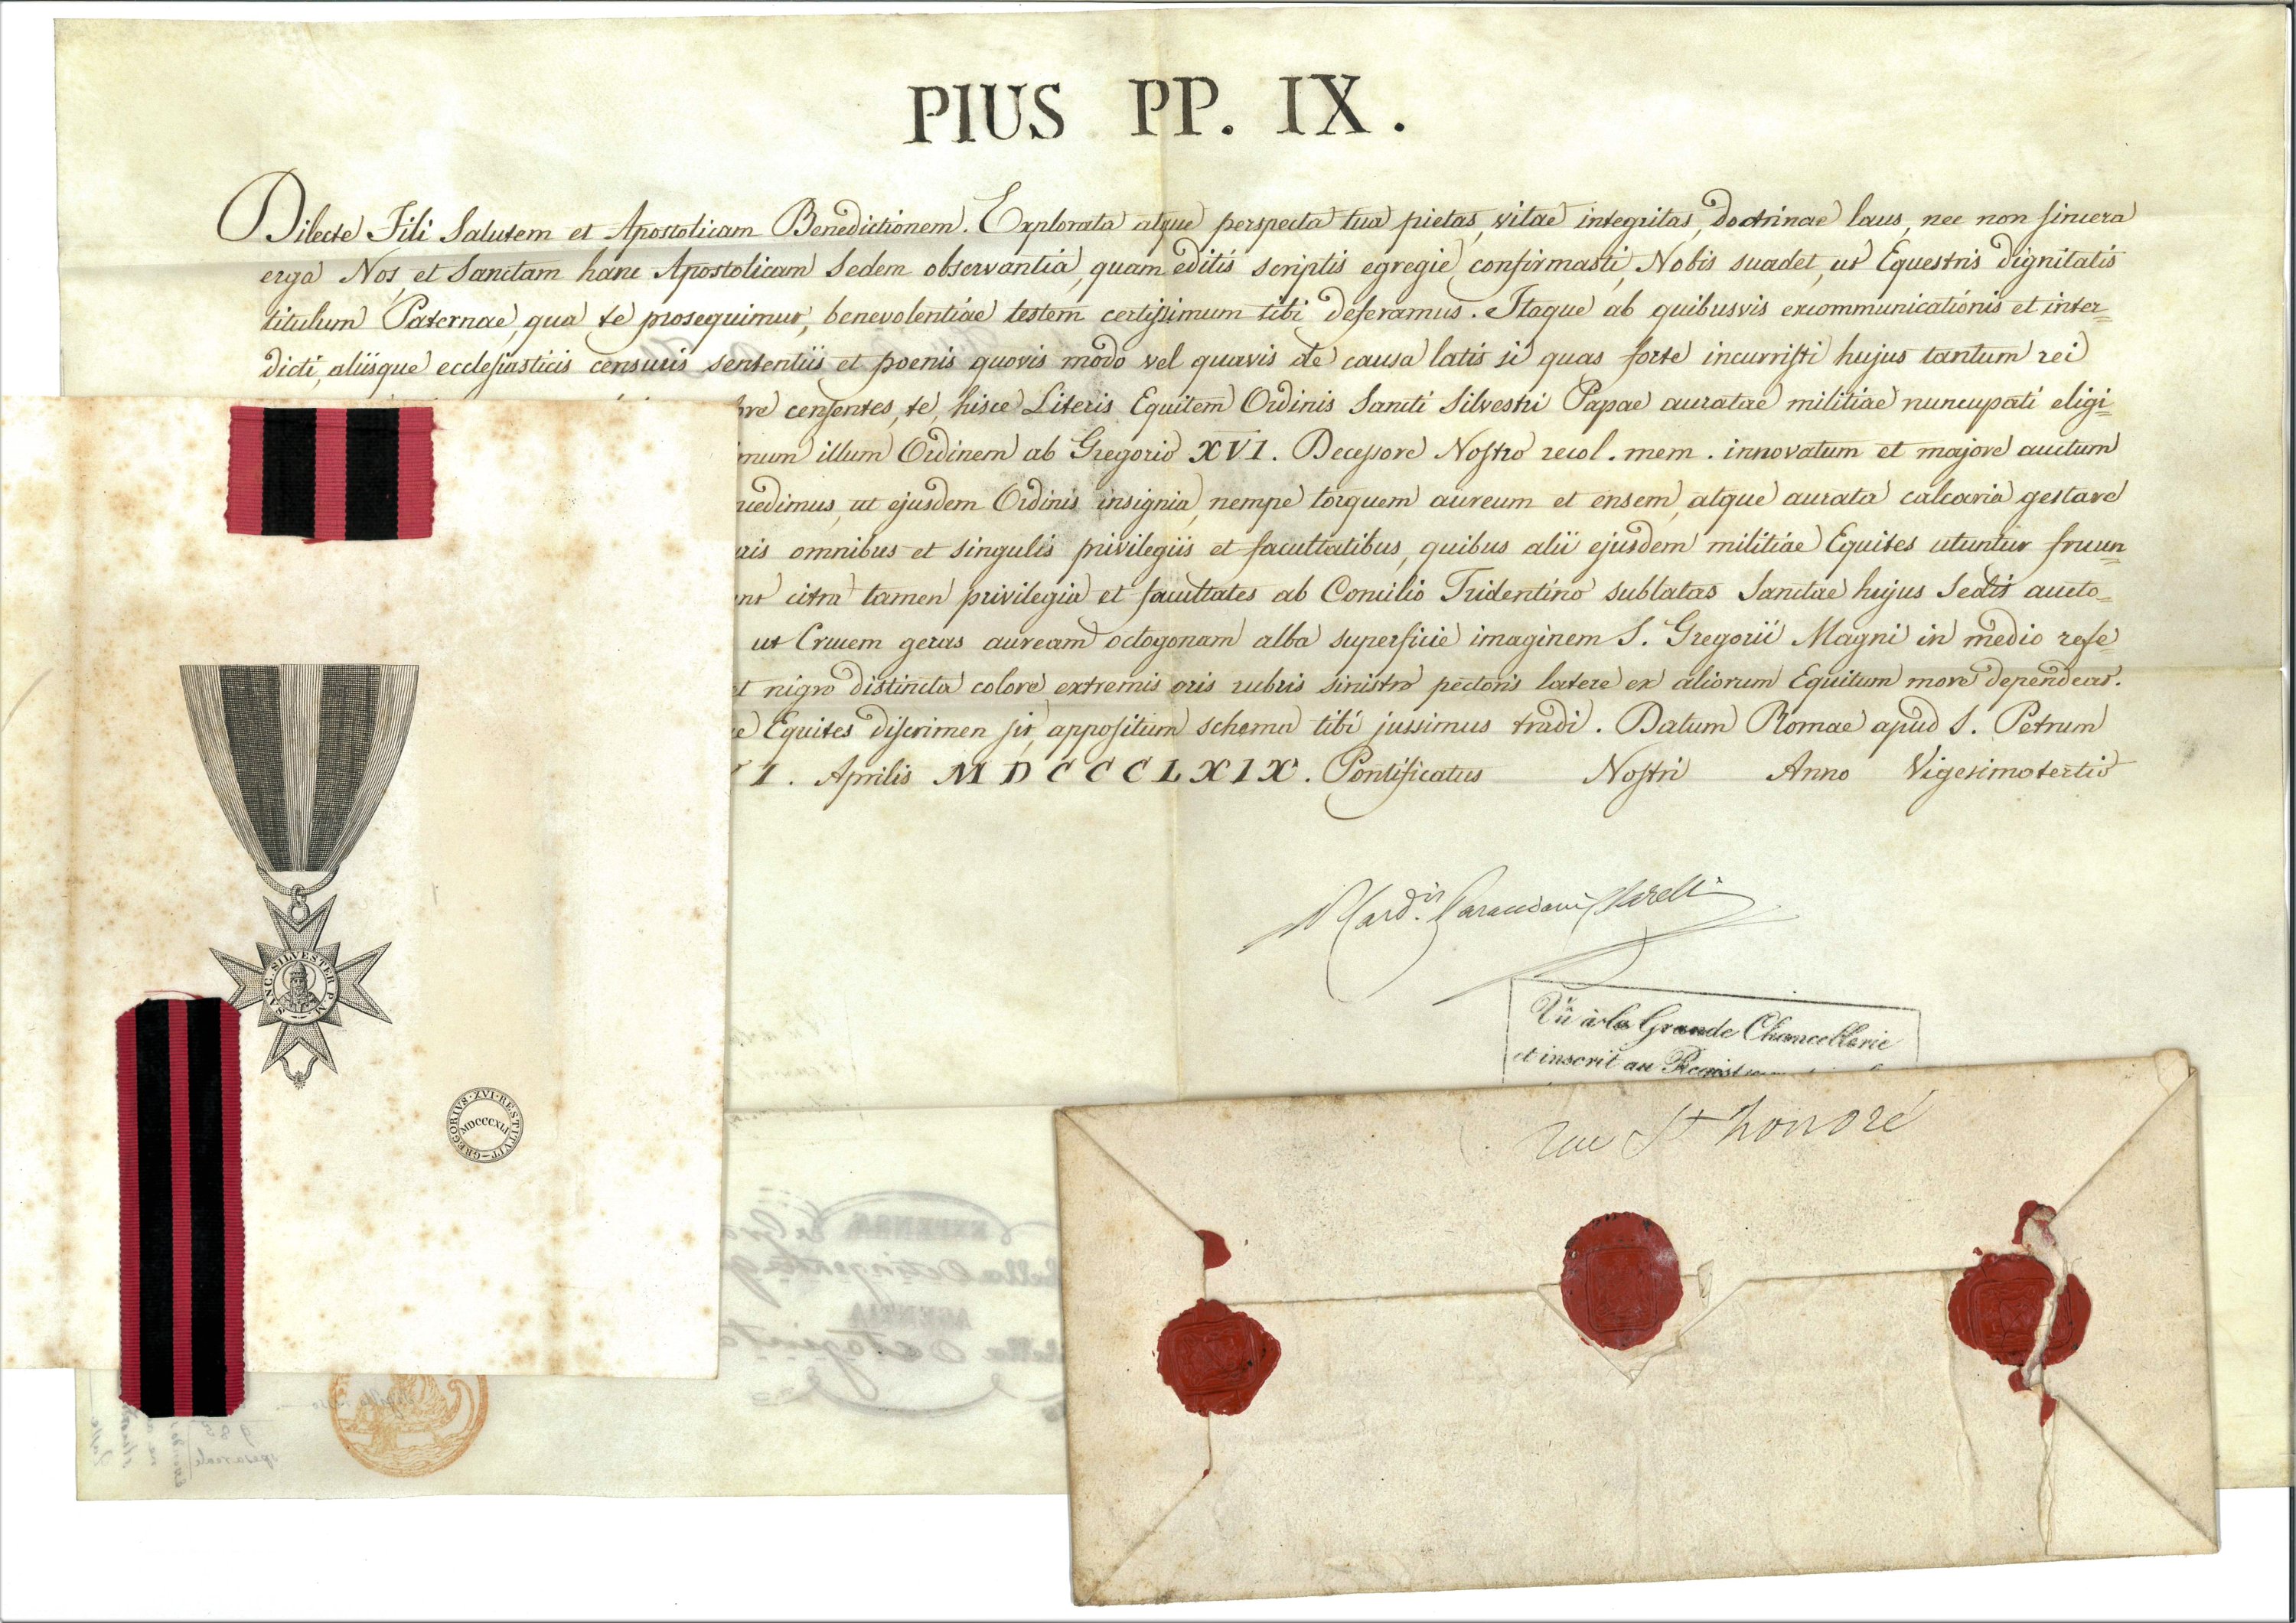 PIUS PP. IX.
Dilecte Fili Salutem et Apostolicam Benedictionem. Explorata atque perspecta tua pietas, vitae integritas, doctrinae laus, nec non sincera
erga Nos, et Sanctam hanc Apostolicam Sedem observantia, quam editis scriptis egregie confirmasti, Nobis suadet, ut Equestris dignitatis
titulum Paternae, qua te prosequimur, benevolentiae testem certissimum tibi deferamus. Itaque ab quibusvis excommunicationis et inter=
dicti, aliisque ecclesiasticis censuris sententiis et poenis quovis modo vel quavis de causa latis si quas forte incurristi hujus tantum rei
ore censentes, te hisce Literis Equitem Ordinis Sancti Silvestri Papae auratae militiae nuncupati eligi=
mum illum Ordinem ab Gregorio XVI. Decessore Nostro recol. mem. innovatum et majore auctum
cedimus, ut ejusdem Ordinis insignia, nempe torquem aureum et ensem, atque aurata calcaria gestare
uis omnibus et singulis privilegiis et facultatibus, quibus alii ejusdem militiae Equites utuntur fruun=
citra tamen privilegia et facultates ab Concilio Tridentino sublatas Sanctae hujus Sedis aucto=
ut Crucem geras auream octogonam alba superficie imaginem S. Gregorii Magni in medio refe=
t nigro distincta colore extremis oris rubris sinistro pectoris latere ex aliorum Equitum more dependeat.
e Equites discrimen sit, appositum schema tibi jussimus tradi. Datum Romae apud S. Petrum
I. Aprilis MDCCCLXIX. Pontificatus Nostri Anno Vigesimotertio
SANC. SILVESTER P.M.
GREGORIVS·XVI·RESTITVIT
MDCCCXLI
Vu à la Grande Chancellerie
et inscrit au
rue St honoré